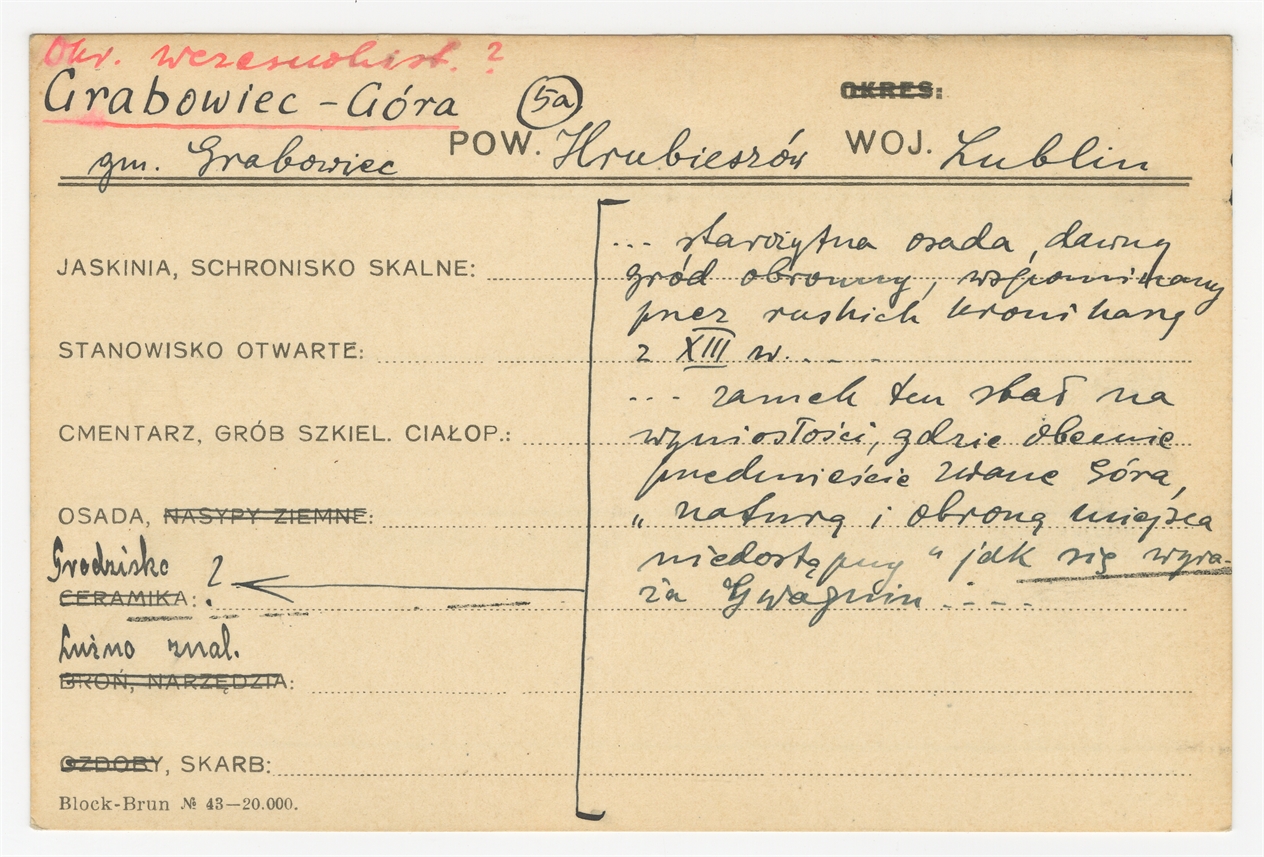 Okr. wczesnohist. ?
Grabowiec - Góra 5a OKRES:
gm. Grabowiec POW. Hrubieszów WOJ. Lublin
... starożytna osada, dawny
JASKINIA, SCHRONISKO SKALNE: gród obronny, wspominany
przez ruskich kronikarzy
STANOWISKO OTWARTE: z XIII w. . . .
... zamek ten stał na
CMENTARZ, GRÓB SZKIEL. CIAŁOP.: wyniosłości, gdzie obecnie
przedmieście zwane Góra,
OSADA, NASYPY ZIEMNE: „naturą i obroną miejsca
Grodzisko ? niedostępny" jak się wyra-
CERAMIKA: ża Gwagnin . . . .
Luźno znal.
BROŃ, NARZĘDZIA:
OZDOBY, SKARB:
Block-Brun № 43—20.000.